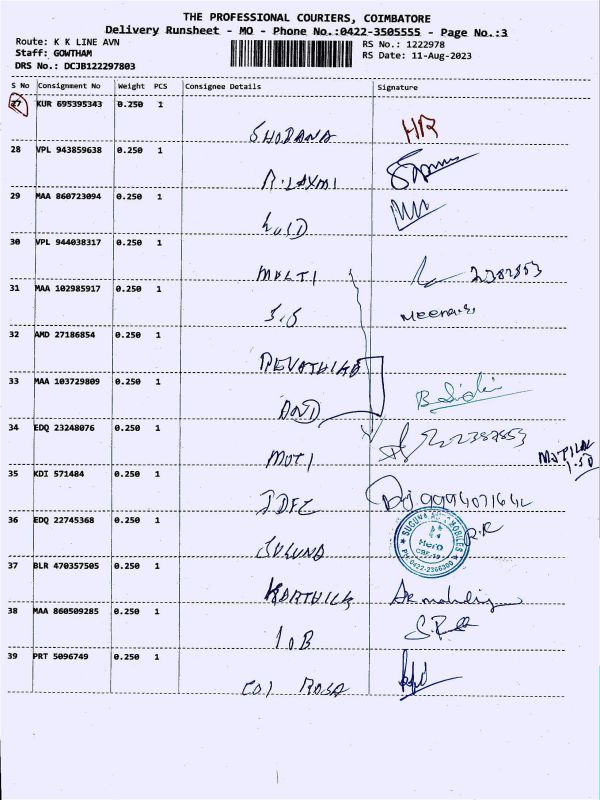 THE PROFESSIONAL COURIERS, COIMBATORE
Delivery Runsheet - MO - Phone No.:0422-3505555 - Page No.:3
Route: K K LINE AVN
RS No.: 1222978
Staff: GOWTHAM
RS Date: 11-Aug-2023
DRS No.: DCJB122297803
S No Consignment No Weight PCS Consignee Details Signature
27 KUR 695395343 0.250 1
SHODANA HR
28 VPL 943859638 0.250 1
R.LAXMI
29 MAA 860723094 0.250 1
30 VPL 944038317 0.250 1
MULTI 2387853
31 MAA 102985917 0.250 1
S.S
32 AMD 27186854 0.250 1
33 MAA 103729809 0.250 1
34 EDQ 23248076 0.250 1
MOTI 2387853
35 KDI 571484 0.250 1
IDFC 9994071642
36 EDQ 22745368 0.250 1
SUGUNA
SUGUNA AUTOMOBILES
Hero
CBE-18
PH: 0422-2366300
37 BLR 470357505 0.250 1
KARTHICK
38 MAA 860509285 0.250 1
I O B
39 PRT 5096749 0.250 1
ROSA